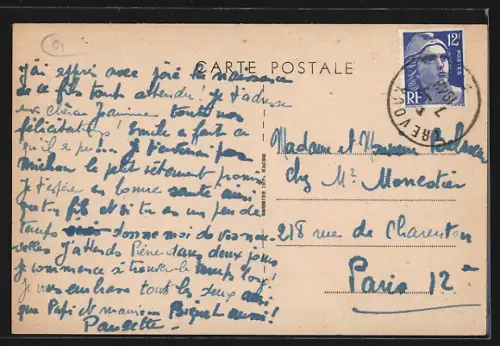 CARTE POSTALE
12F
POSTES
RF
J'ai appris avec joie la naissance
de ce fils tant attendu! Je t'adresse
ma chère Jeannine toutes nos
félicitations! Emile a fait ce
qu'il a pu Je t'enverrai par
le petit vêtement promis
J'espère en bonne santé ainsi
que ton fils et si tu as un peu de
temps donne moi de vos nou-
velles J'attends Pierre dans deux jours
Je commence à trouver le temps long!
Je vous embrasse tous les deux ainsi
que Papi et maman Biquet aussi!
Paulette
Madame et Monsieur
chez Mr Monestier
218 rue de Charenton
Paris 12e